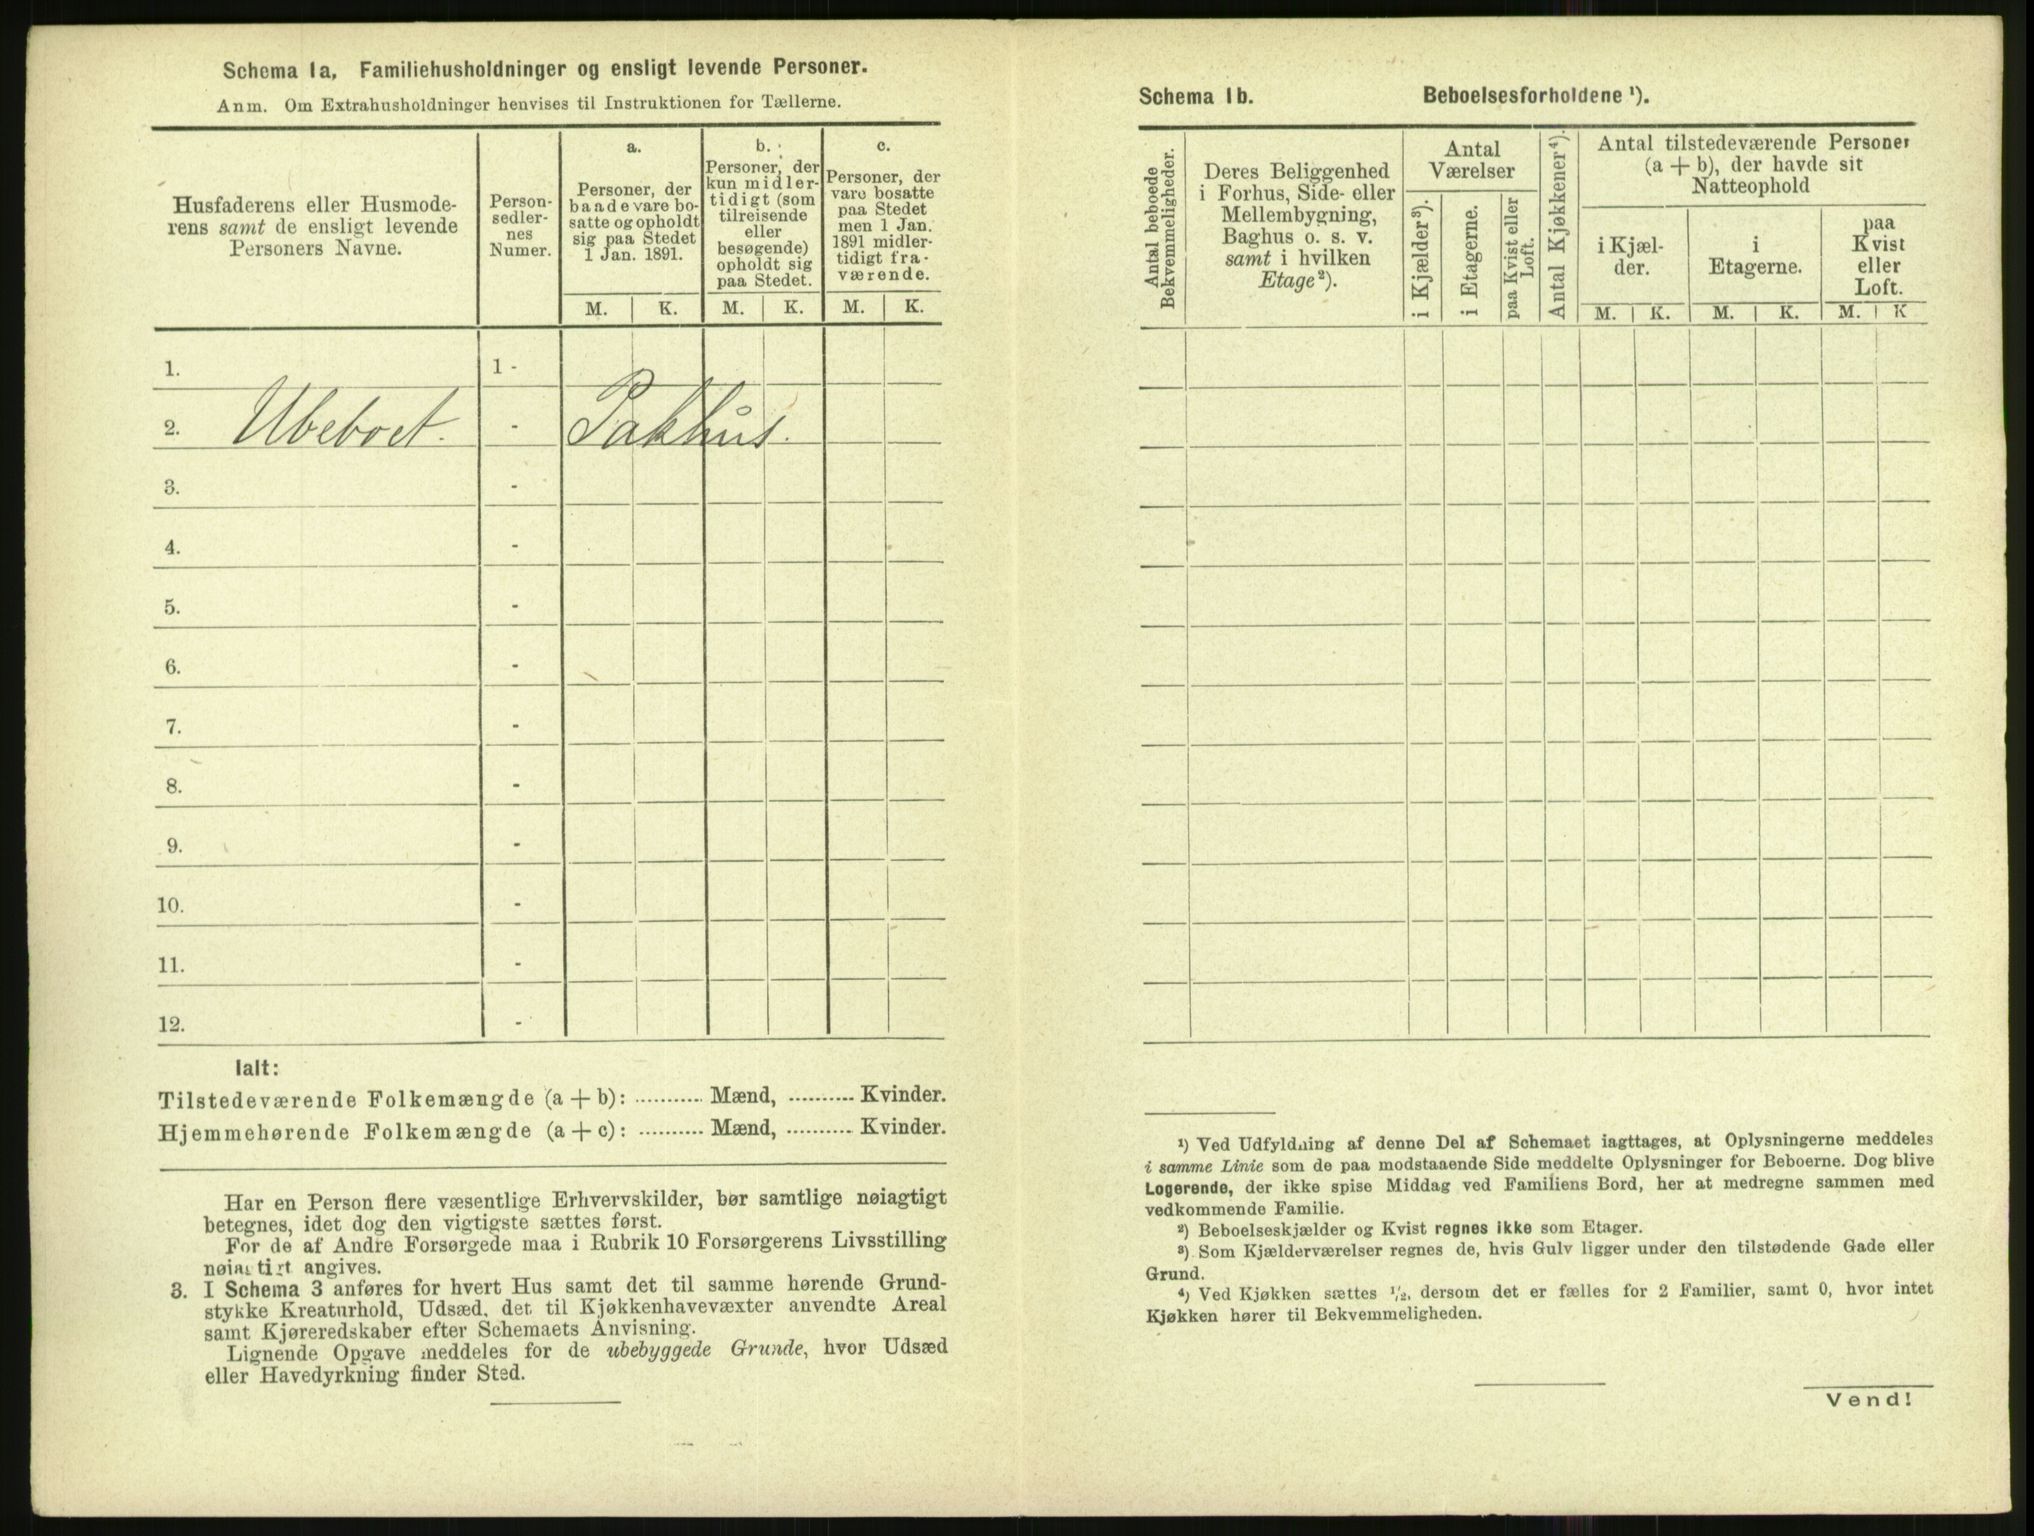 Schema 1a, Familiehusholdninger og ensligt levende Personer.
Anm. Om Extrahusholdninger henvises til Instruktionen for Tællerne.
Husfaderens eller Husmode-
rens samt de ensligt levende
Personers Navne.
Person-
sedler-
nes
Numer.
a.
Personer, der
baade vare bo-
satte og opholdt
sig paa Stedet
1 Jan. 1891.
b.
Personer, der
kun midler-
tidigt (som
tilreisende
eller
besøgende)
opholdt sig
paa Stedet.
c.
Personer, der
vare bosatte
paa Stedet
men 1 Jan.
1891 midler-
tidigt fra-
værende.
M. K. M. K. M. K.
1. 1 -
2. Ubeboet. - Pakhus.
3. -
4. -
5. -
6. -
7. -
8. -
9. -
10. -
11. -
12. -
Ialt:
Tilstedeværende Folkemængde (a + b): .......... Mænd, .......... Kvinder.
Hjemmehørende Folkemængde (a + c): .......... Mænd, .......... Kvinder.
Har en Person flere væsentlige Erhvervskilder, bør samtlige nøiagtigt
betegnes, idet dog den vigtigste sættes først.
For de af Andre Forsørgede maa i Rubrik 10 Forsørgerens Livsstilling
nøiagtigt angives.
3. I Schema 3 anføres for hvert Hus samt det til samme hørende Grund-
stykke Kreaturhold, Udsæd, det til Kjøkkenhavevæxter anvendte Areal
samt Kjøreredskaber efter Schemaets Anvisning.
Lignende Opgave meddeles for de ubebyggede Grunde, hvor Udsæd
eller Havedyrkning finder Sted.
Schema 1b. Beboelsesforholdene ¹).
Antal beboede
Bekvemmeligheder.
Deres Beliggenhed
i Forhus, Side- eller
Mellembygning,
Baghus o. s. v.
samt i hvilken
Etage²).
Antal
Værelser
i Kjælder³).
i Etagerne.
paa Kvist eller
Loft.
Antal Kjøkkener⁴).
Antal tilstedeværende Personer
(a + b), der havde sit
Natteophold
i Kjæl-
der.
i
Etagerne.
paa
Kvist
eller
Loft.
M. K. M. K. M. K
¹) Ved Udfyldning af denne Del af Schemaet iagttages, at Oplysningerne meddeles
i samme Linie som de paa modstaaende Side meddelte Oplysninger for Beboerne. Dog blive
Logerende, der ikke spise Middag ved Familiens Bord, her at medregne sammen med
vedkommende Familie.
²) Beboelseskjælder og Kvist regnes ikke som Etager.
³) Som Kjælderværelser regnes de, hvis Gulv ligger under den tilstødende Gade eller
Grund.
⁴) Ved Kjøkken sættes ¹/₂, dersom det er fælles for 2 Familier, samt 0, hvor intet
Kjøkken hører til Bekvemmeligheden.
Vend!